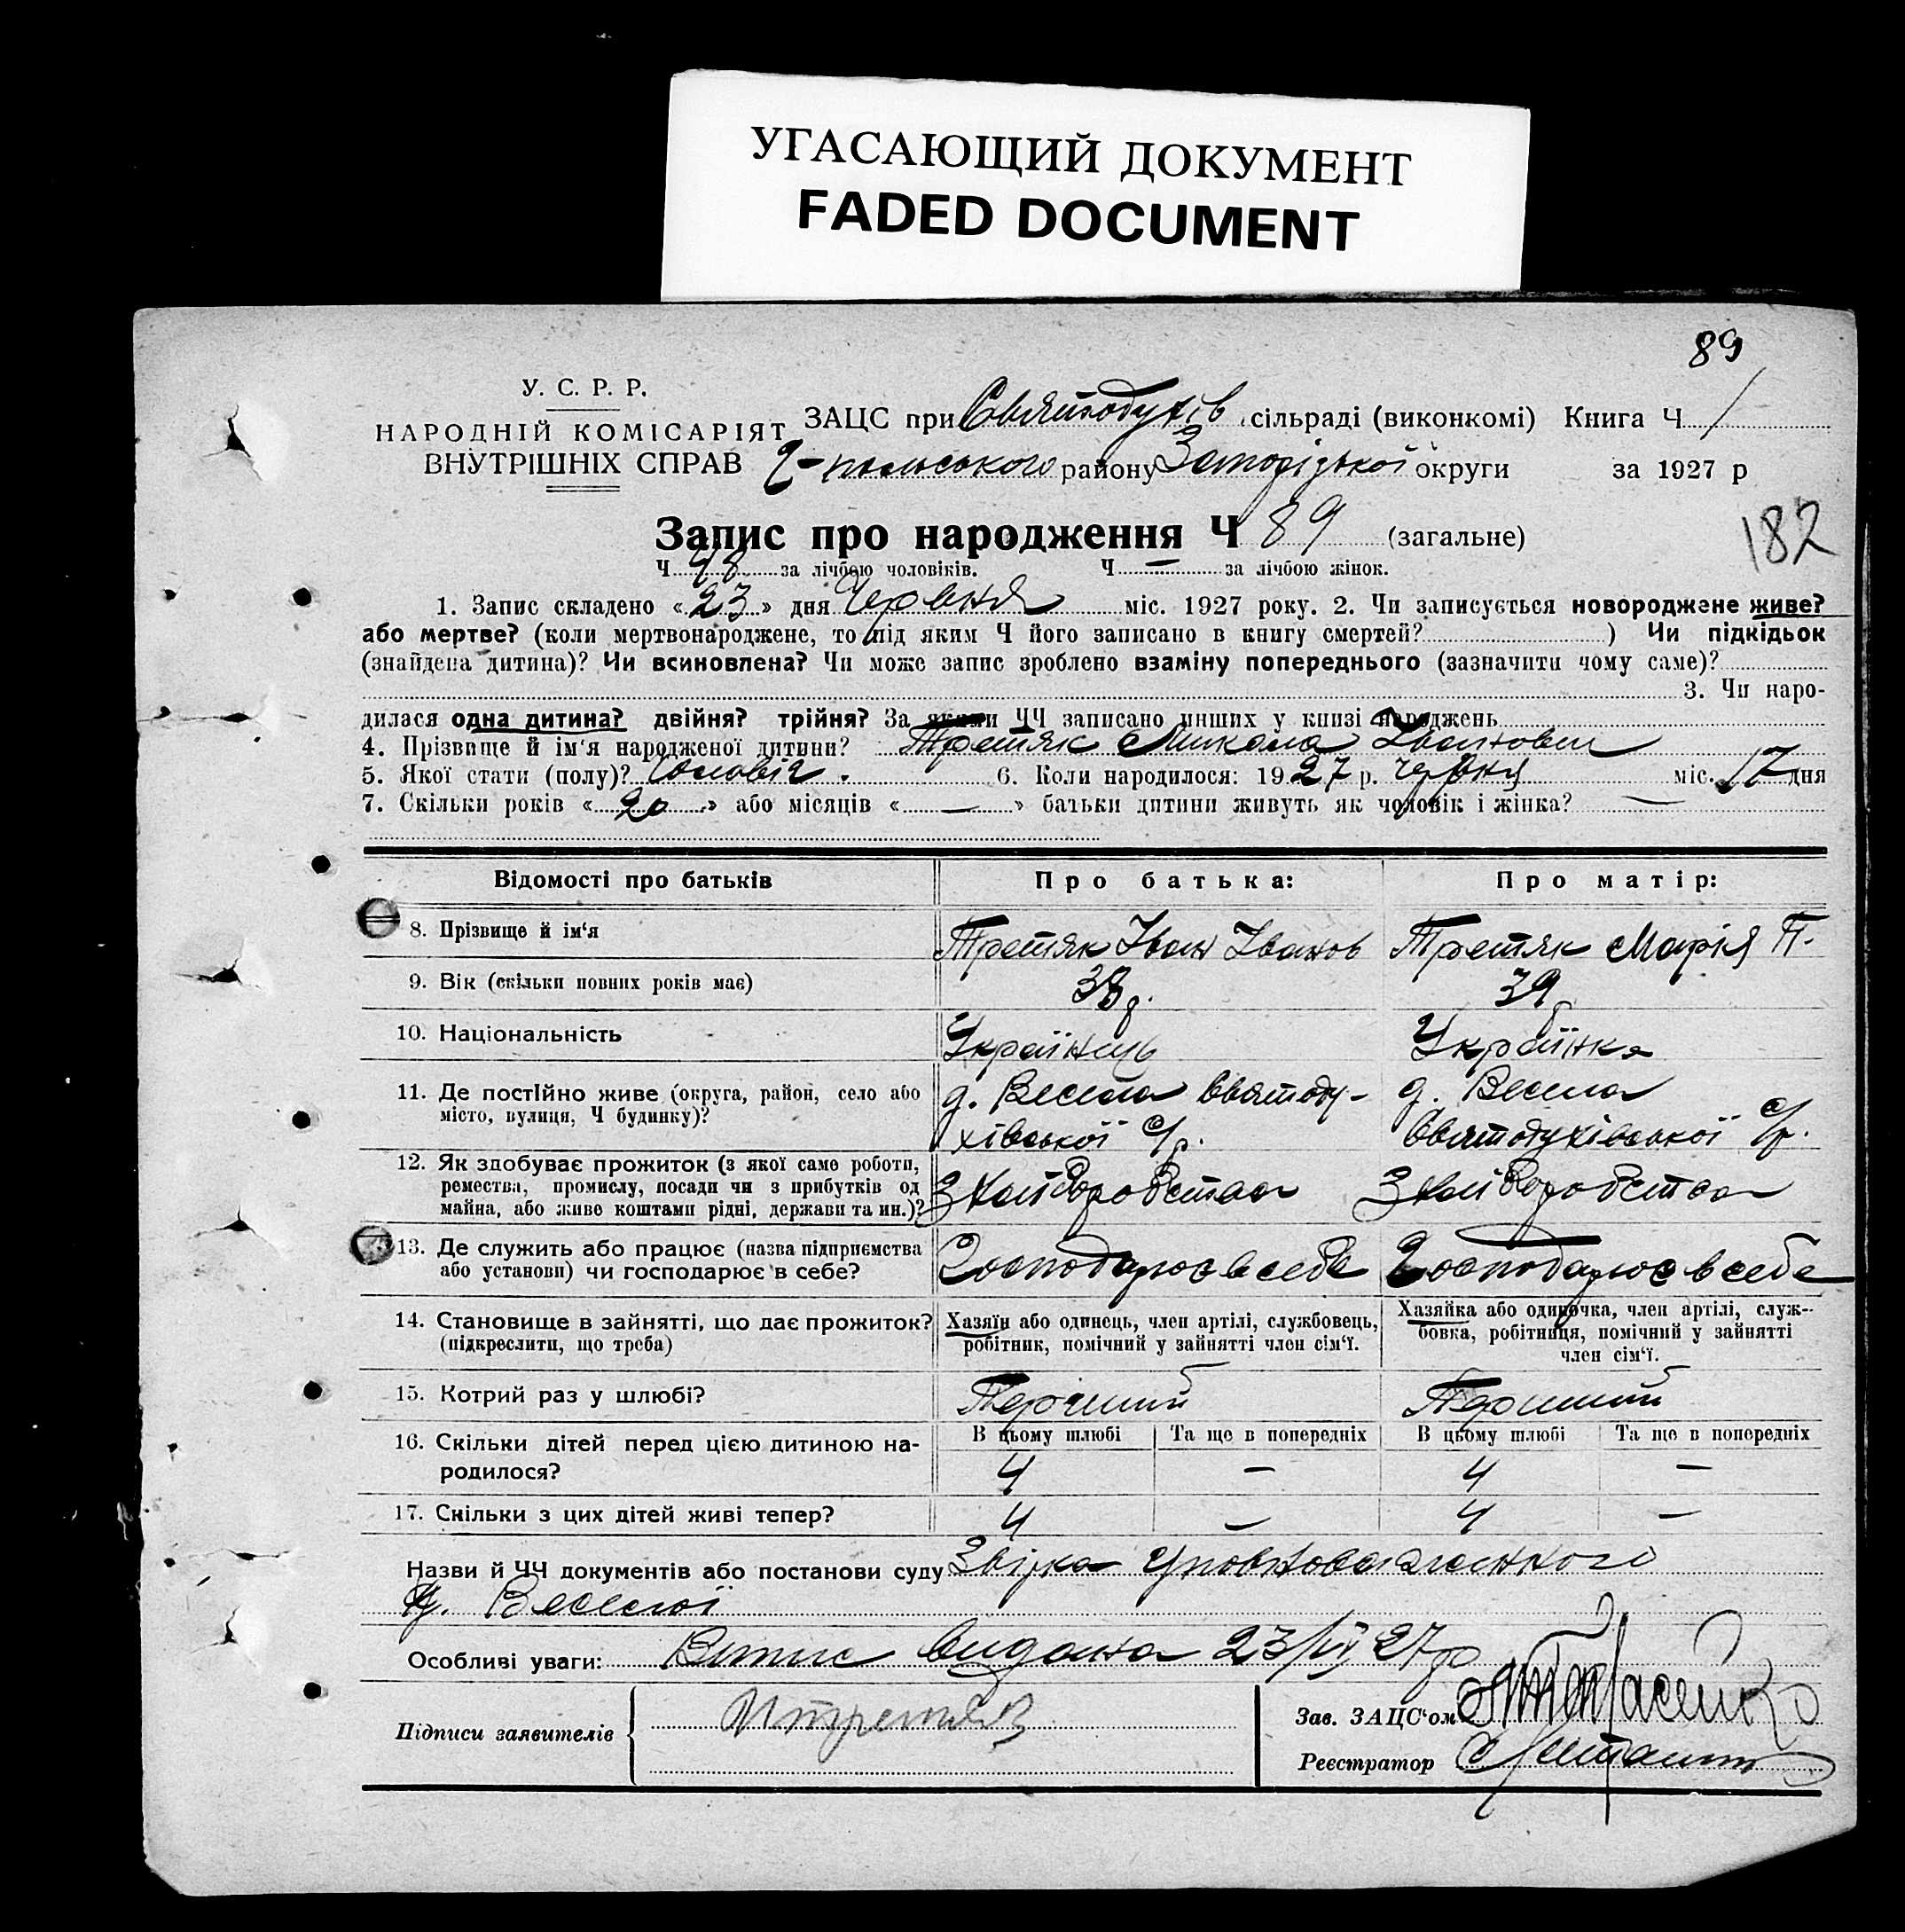 УГАСАЮЩИЙ ДОКУМЕНТ
FADED DOCUMENT
89
У. С. Р. Р.
НАРОДНІЙ КОМІСАРІЯТ
ВНУТРІШНІХ СПРАВ
ЗАЦС при Святодухів сільраді (виконкомі) Книга Ч 1
Г-польського району Запорізької округи за 1927 р
182
Запис про народження Ч 89 (загальне)
Ч 48 за лічбою чоловіків. Ч — за лічбою жінок.
1. Запис складено « 23 » дня Червня міс. 1927 року. 2. Чи записується новороджене живе?
або мертве? (коли мертвонароджене, то під яким Ч його записано в книгу смертей? ) Чи підкідьок
(знайдена дитина)? Чи всиновлена? Чи може запис зроблено взаміну попереднього (зазначити чому саме)?
3. Чи наро-
дилася одна дитина? двійня? трійня? За якими ЧЧ записано инших у книзі народжень
4. Прізвище й ім'я народженої дитини? Третяк Микола Іванович
5. Якої стати (полу)? Чоловіч. 6. Коли народилося: 1927 р. червня міс. 17 дня
7. Скільки років « 20 » або місяців « — » батьки дитини живуть як чоловік і жінка? —
Відомості про батьків Про батька: Про матір:
8. Прізвище й ім'я Третяк Іван Іванов Третяк Марія П.
9. Вік (скільки повних років має) 38 р. 39
10. Національність Українець Українка
11. Де постійно живе (округа, район, село або місто, вулиця, Ч будинку)?
д. Весела Святоду-
хівської с/р.
д. Весела
Святодухівської с/р.
12. Як здобуває прожиток (з якої саме роботи,
ремества, промислу, посади чи з прибутків од
майна, або живе коштами рідні, держави та ин.)?
З хліборобства З хліборобства
13. Де служить або працює (назва підприємства
або установи) чи господарює в себе?
Господарює в себе Господарює в себе
14. Становище в зайнятті, що дає прожиток?
(підкреслити, що треба)
Хазяїн або одинець, член артілі, службовець,
робітник, помічний у зайнятті член сім'ї.
Хазяйка або одиночка, член артілі, служ-
бовка, робітниця, помічний у зайнятті
член сім'ї.
15. Котрий раз у шлюбі? Перший Перший
16. Скільки дітей перед цією дитиною на-
родилося?
В цьому шлюбі Та ще в попередніх В цьому шлюбі Та ще в попередніх
4 — 4 —
17. Скільки з цих дітей живі тепер? 4 — 4 —
Назви й ЧЧ документів або постанови суду Звірка уповноваженного
д. Веселої
Особливі уваги: Витис видана 23/VI 27р
Підписи заявителів Итретяк
Зав. ЗАЦС'ом
Реєстратор